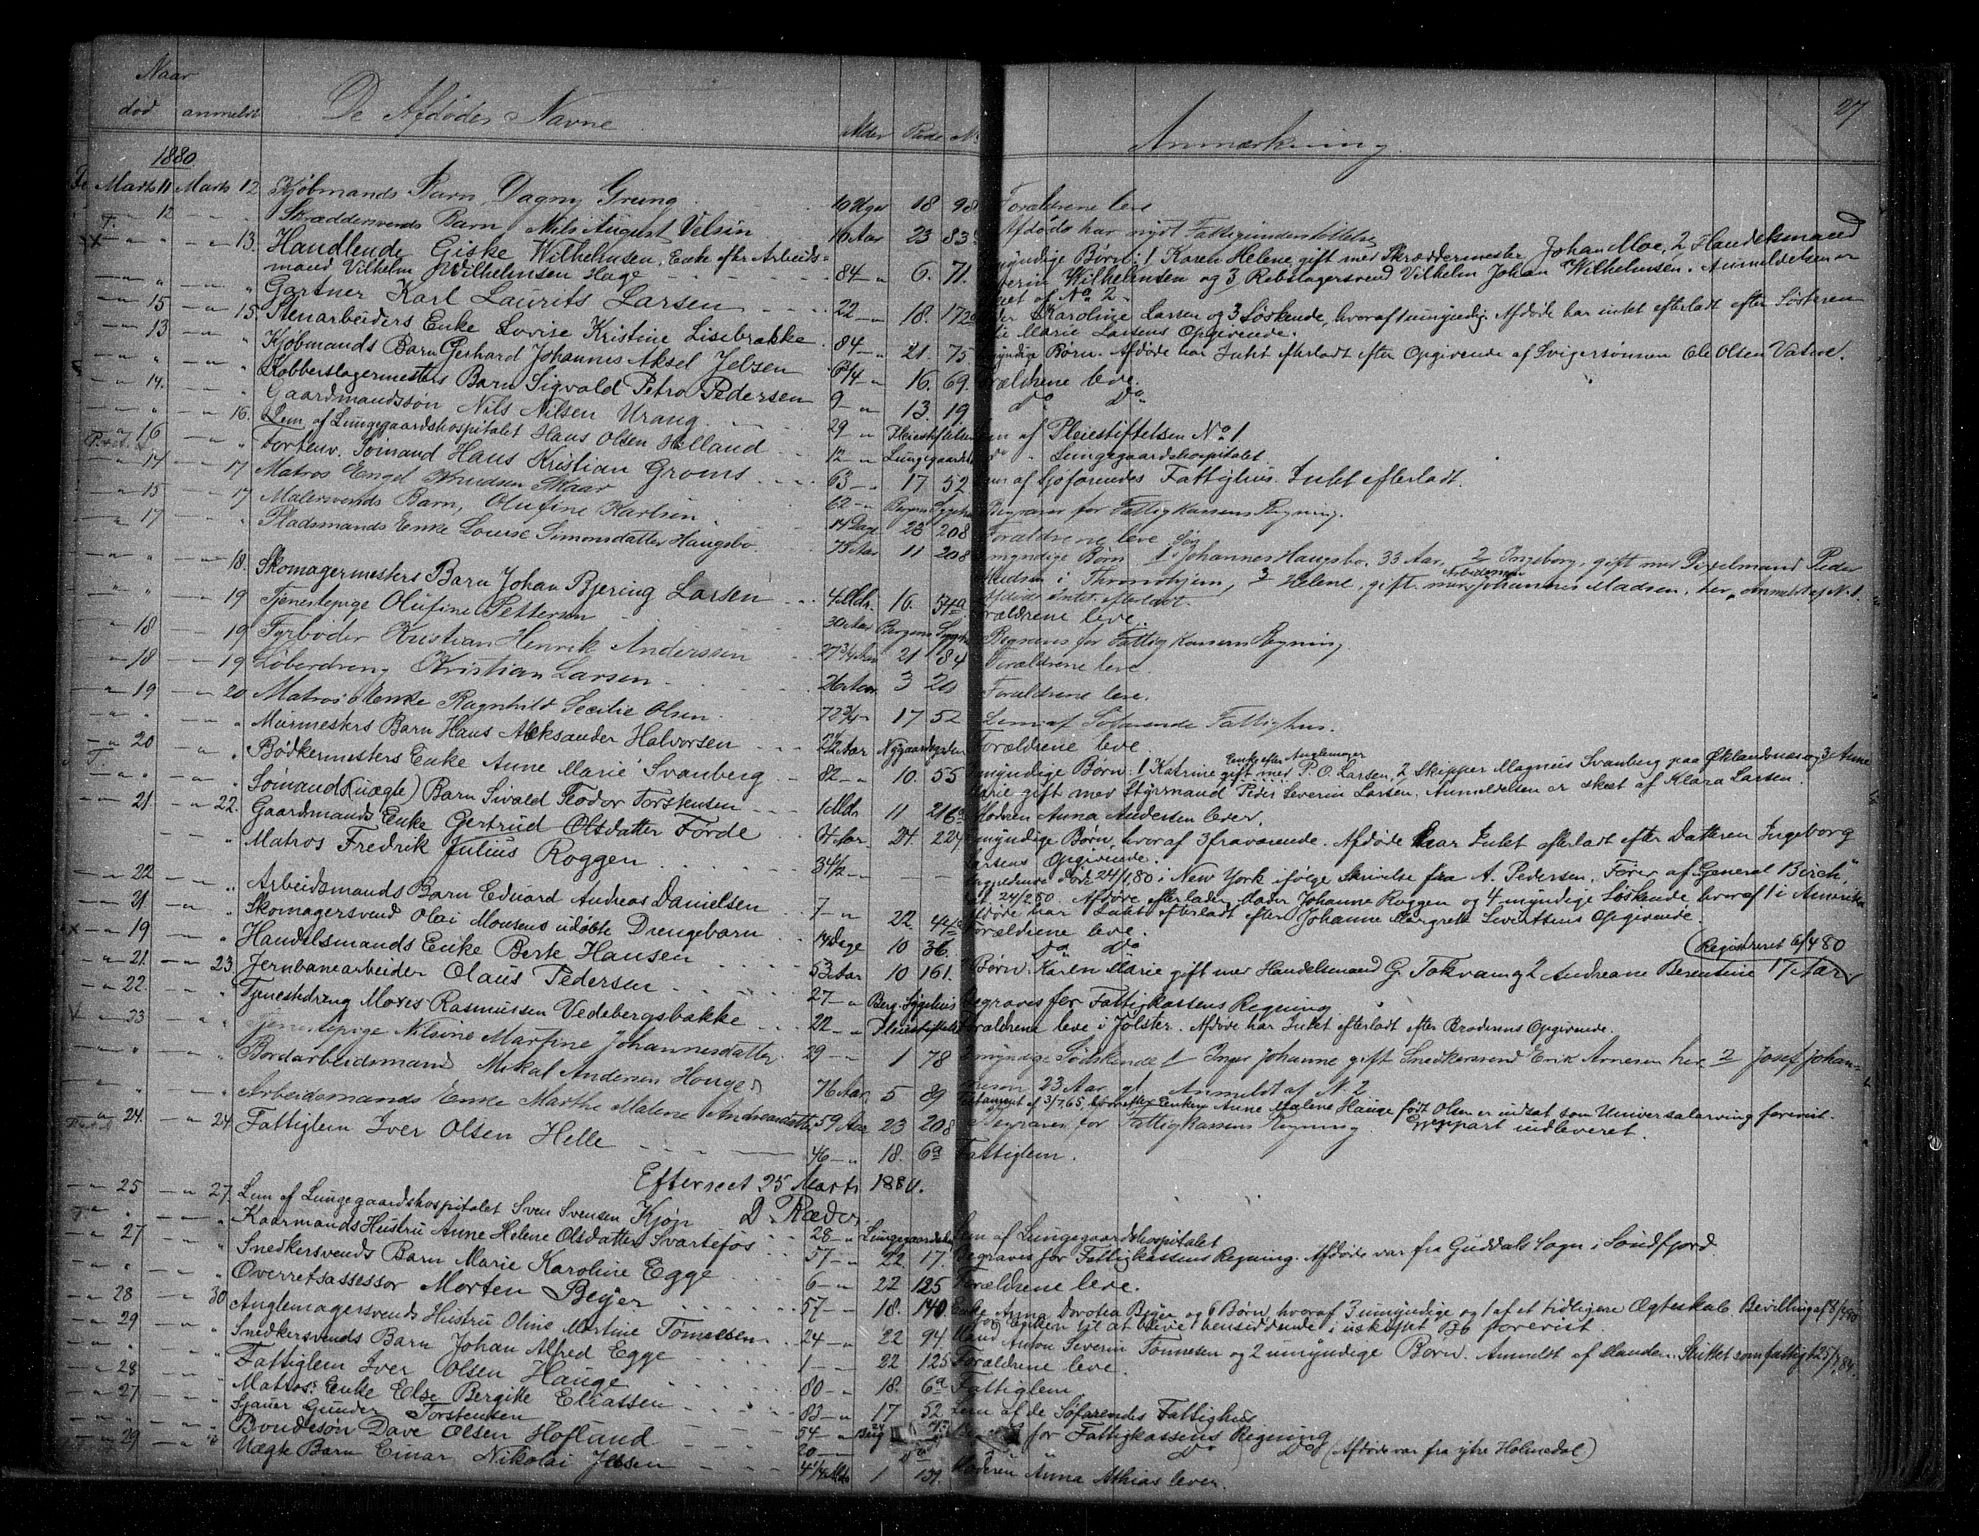 27
Naar
død anmeldt De Afdødes Navne Alder Rode No Anmærkning
1880
Marts 11 Marts 12 Kjøbmands Barn, Dagny Grung 10 Uger 18 98 Forældrene leve
12 Skræddersvends Barn Nils August Velsin 10 Aar 23 83 Afdøde har nydt Fattigunderstøttelse
13. Handlende Giske Wilhelmsen, Enke efter Arbeids= 84 6. 71. myndige Børn: 1 Karen Helene gift med Skræddermester Johan Moe, 2 Handelsmand
mand Vilhelm Wilhelmsen Hage Wilhelmsen og 3 Rebslagersvend Vilhelm Johan Wilhelmsen. Anmeldelsen er
af No 2.
Gartner Karl Laurits Larsen 22 18. 172 Karoline Larsen og 3 Søskende, hvoraf 1 umyndig. Afdøde har intet efterladt efter Søsteren
Marie Larsens Opgivende.
15 15. Stenarbeiders Enke Lovise Kristine Lisebrække 84 21. 75 myndige Børn. Afdøde har Intet efterladt efter Opgivende af Svigersønnen Ole Olsen Vatne.
13 Kjøbmands Barn Gerhard Johannes Aksel Jebsen 6 3/4 16. 69. Forældrene leve.
Kobberslagermesters Barn Sigvald Petro Pedersen 9 13. 19 Do Do
14. Gaardmandssøn Nils Nilsen Urang 29 Pleiestiftelsen Lem af Pleiestiftelsen No 1
16. Lem af Lungegaardshospitalet Hans Olsen Helland 12 Lungegaards Do " Lungegaardshospitalet
16 Forhenv. Sømand Hans Kristian Groms 63 17 52 Lem af Sjøfarendes Fattighus. Intet efterladt.
14 17 Matros Engel Knudsen Skaar 62 Bergens Sygehus Begraves for Fattigkassens Regning.
15 17 Malersvends Barn, Olufine Karlsen 14 Dage 23 208 Forældrene leve
17 Pladsmands Enke Lovise Simonsdatter Haugsbø 75 Aar 11 208 myndige Børn 1 Søn Johannes Haugsbø, 33 Aar, 2 Ingeborg, gift med Peder
Knudsen i Thronhjem, 3 Helene, gift med Arbeidsmand Johannes Madsen, her, Anmeldt af No 1.
Afdøde Intet efterladt.
18. Skomagermesters Barn Johan Bjering Larsen 4 Mdr. 16. 54a Forældrene leve.
19 Tjenestepige Olufine Pettersen 30 Aar Bergens Sygehus Begraves for Fattigkassens Regning
18 19 Fyrbøder Kristian Henrik Andersen 27 3/4 Aar 21 84 Forældrene leve
18 19 Løberdreng Kristian Larsen 26 Aar 3 20 Forældrene leve.
19 20 Matros Enke Ragnhild Secilie Olsen 72 3/4 17 52 Lem af Søfarende Fattighus.
Murmesters Barn Hans Aleksander Halvorsen 2 1/2 Aar Nygaardsgaten Forældrene leve.
20 Bødkermesters Enke Anne Marie Svanberg 82 10. 55 myndige Børn: 1 Katrine Enke efter Anglemager gift med P. O. Larsen, 2 Skipper Magnus Svanberg paa og 3 Anne
Marie gift med Styrmand Peder Severin Larsen, Anmeldelsen er skeet af Klara Larsen.
Sømand (uægte) Barn Sivald Teodor Torstensen 1 Mdr 11 216a Moderen Anna Andersen lever.
21. 22. Gaardmands Enke Gertrud Olsdatter Førde 74 Aar 24. 224 myndige Børn, hvoraf 3 fraværende. Afdøde har Intet efterladt efter Datteren Ingeborg
Larsens Opgivende.
Matros Fredrik Julius Roggen 34 1/2 døde 24/1 80 i New York ifølge Skrivelse fra A. Pedersen, Fører af "General Birch",
Afdøde efterlader Moder Johanne Roggen og 4 myndige Søskende, hvoraf 1 i Amerika
Afdøde har Intet efterladt efter Johanne Margrete Opgivende.
22 Arbeidsmands Barn Eduard Andreas Danielsen 7 22. 44a Forældrene leve.
21. Skomagersvend Olai Monsens udøbte Drengebarn 14 Dage 10 36. Do Do
19 Handelsmands Enke Berte Hansen 53 Aar 10 161. Børn: Karen Marie gift med Handelsmand G. Tokvam og 2 Andreane Berentine 17 Aar (Registreret 6/4 80
21. 23. Jernbanearbeider Olaus Pedersen 27 Berg. Sygehus Begraves for Fattigkassens Regning
22. Tjenestedreng Moses Rasmussen Vedebergsbakke 22 Pleiestiftelsen Forældrene leve i Jølster. Afdøde har Intet efterladt efter Broderens Opgivende.
23 Tjenestepige Nilsine Martine Johannesdatter 29 1 78 2 myndige Søskende 1 Inger Johanne gift Snedkersvend Erik Arnesen her 2 Josef Johan=
nesen 23 Aar Anmeldt af N 2
Bordarbeidsmand Mikal Andersen Hauge 76 Aar 5 89 Testament af 3/7 65 hvorefter Enken Anne Malene Hauge født Olsen er indsat som Universalarving forevist.
Genpart indleveret.
Arbeidsmands Enke Marthe Malene Andreasdatter 59 Aar 23 208 Begraves for Fattigkassens Regning
24. 24 Fattiglem Iver Olsen Helle 46 18. 6a Fattiglem.
Efterseet 25 Marts 1880.
D Ræder
25 27. Lem af Lungegaardshospitalet Sven Svensen Kjøn 28 Lungegaards Lem af Lungegaardshospitalet
Kaarmands Hustru Anne Helene Olsdatter Svartefos 57 22 17. Begraves for Fattigkassens Regning. Afdøde var fra Guddals Sogn i Søndfjord
27 Snedkersvends Barn Marie Karoline Egge 6 22 125 Forældrene leve.
Overretsassessor Morten Beyer 57 18. 140. Enke Anna Dorotea Beyer og 6 Børn, hvoraf 3 umyndige og 1 af et tidligere Ægteskab. Bevilling af 8/1
for Enken til at blive hensiddende i uskiftet Bo forevist.
28 30 Anglemagersvends Hustru Oline Martine Tønnesen 24 22 94 Mand Anton Severin Tønnesen og 2 umyndige Børn. Anmeldt af Manden. Sluttet som fattigt 25/7 84.
29 Snedkersvends Barn Johan Alfred Egge 1 22 125 Forældrene leve.
Fattiglem Iver Olsen Hauge 80 18. 6a Fattiglem
28 Matros: Enke Else Bergitte Eliassen 83 17 52 Lem af de Søfarendes Fattighus
27 Sjauer Gunder Torstensen 54 Berg for Fattigkassens Regning
Bondesøn Dave Olsen Hofland 20 Do Do (Afdøde var fra ytre Holmedal)
29 Uægte Barn Einar Nikolai Jessen 4 1/4 Mdr 1 139. Moderen Anna Athias lever.